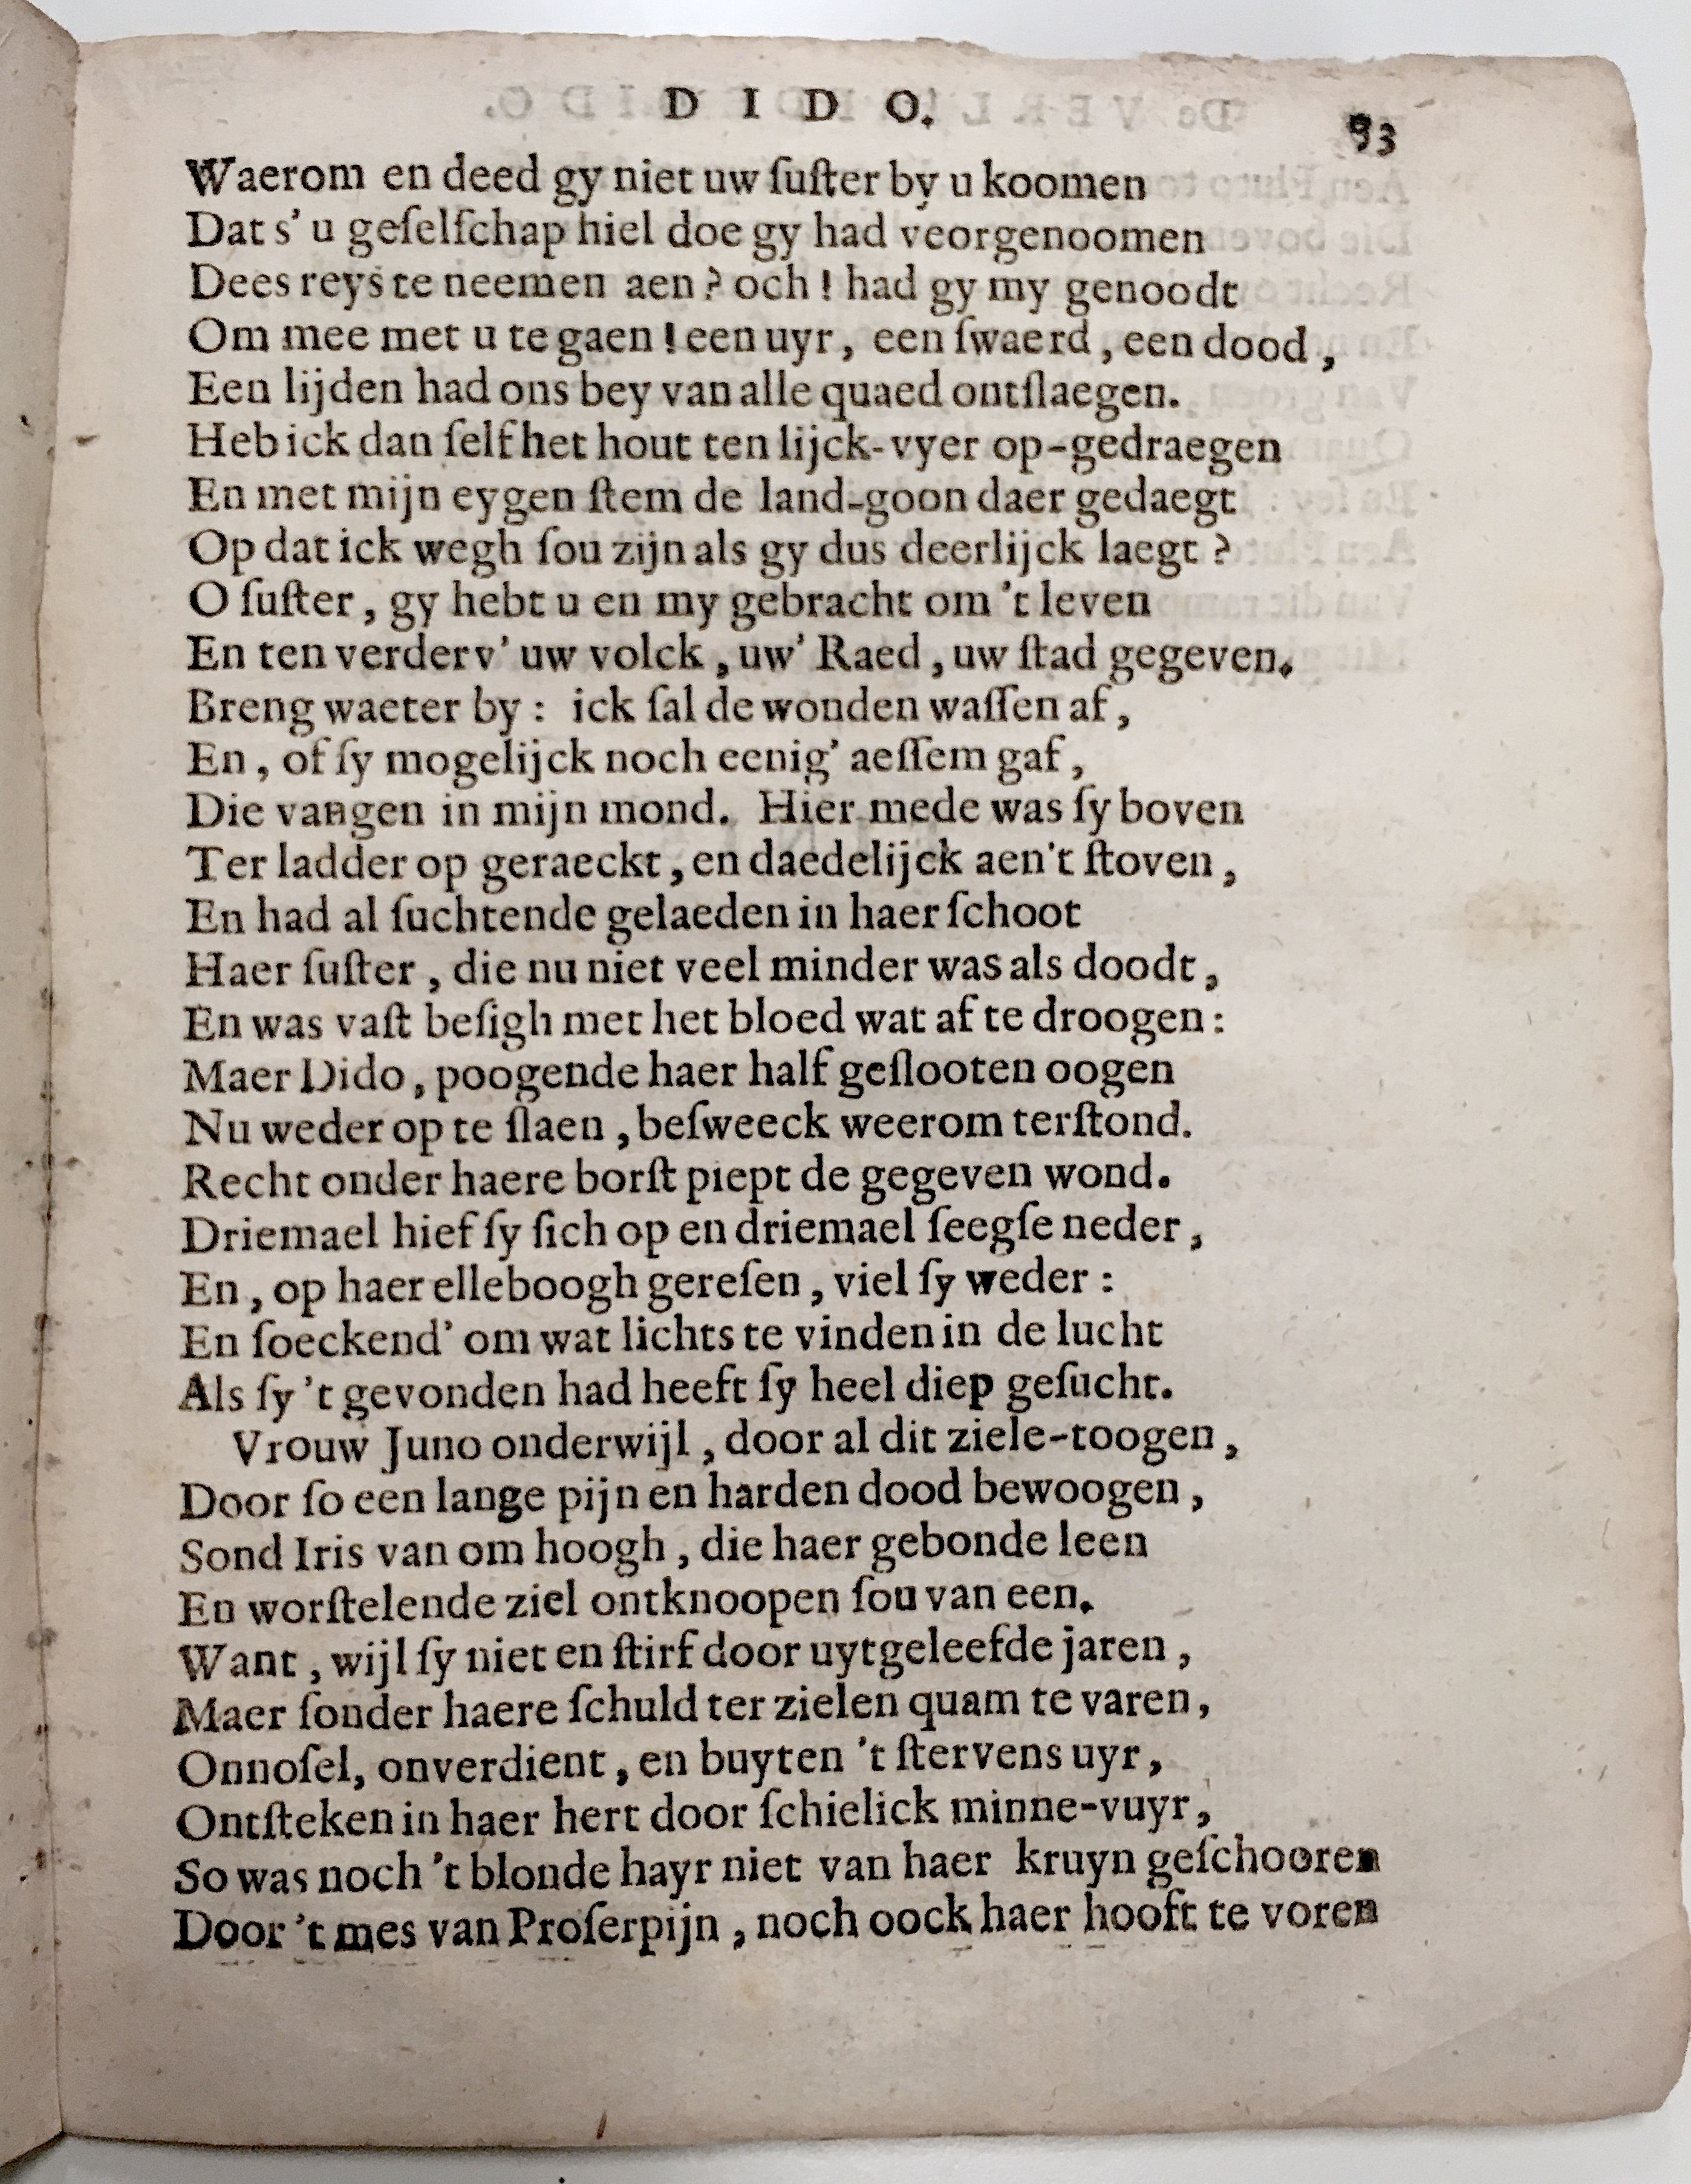 D I D O.
93
Waerom en deed gy niet uw ſuſter by u koomen
Dat s' u geſelſchap hiel doe gy had veorgenoomen
Dees reys te neemen aen? och! had gy my genoodt
Om mee met u te gaen! een uyr, een ſwaerd, een dood,
Een lijden had ons bey van alle quaed ontſlaegen.
Heb ick dan ſelf het hout ten lijck-vyer op-gedraegen
En met mijn eygen ſtem de land-goon daer gedaegt
Op dat ick wegh ſou zijn als gy dus deerlijck laegt?
O ſuſter, gy hebt u en my gebracht om 't leven
En ten verderv' uw volck, uw' Raed, uw ſtad gegeven.
Breng waeter by: ick ſal de wonden waſſen af,
En, of ſy mogelijck noch eenig' aeſſem gaf,
Die vangen in mijn mond. Hier mede was ſy boven
Ter ladder op geraeckt, en daedelijck aen't ſtoven,
En had al ſuchtende gelaeden in haer ſchoot
Haer ſuſter, die nu niet veel minder was als doodt,
En was vaſt beſigh met het bloed wat af te droogen:
Maer Dido, poogende haer half geſlooten oogen
Nu weder op te ſlaen, beſweeck weerom terſtond.
Recht onder haere borſt piept de gegeven wond.
Driemael hief ſy ſich op en driemael ſeegſe neder,
En, op haer elleboogh gereſen, viel ſy weder:
En ſoeckend' om wat lichts te vinden in de lucht
Als ſy 't gevonden had heeft ſy heel diep geſucht.
Vrouw Juno onderwijl, door al dit ziele-toogen,
Door ſo een lange pijn en harden dood bewoogen,
Sond Iris van om hoogh, die haer gebonde leen
En worſtelende ziel ontknoopen ſou van een.
Want, wijl ſy niet en ſtirf door uytgeleefde jaren,
Maer ſonder haere ſchuld ter zielen quam te varen,
Onnoſel, onverdient, en buyten 't ſtervens uyr,
Ontſteken in haer hert door ſchielick minne-vuyr,
So was noch 't blonde hayr niet van haer kruyn geſchooren
Door 't mes van Proſerpijn, noch oock haer hooft te voren